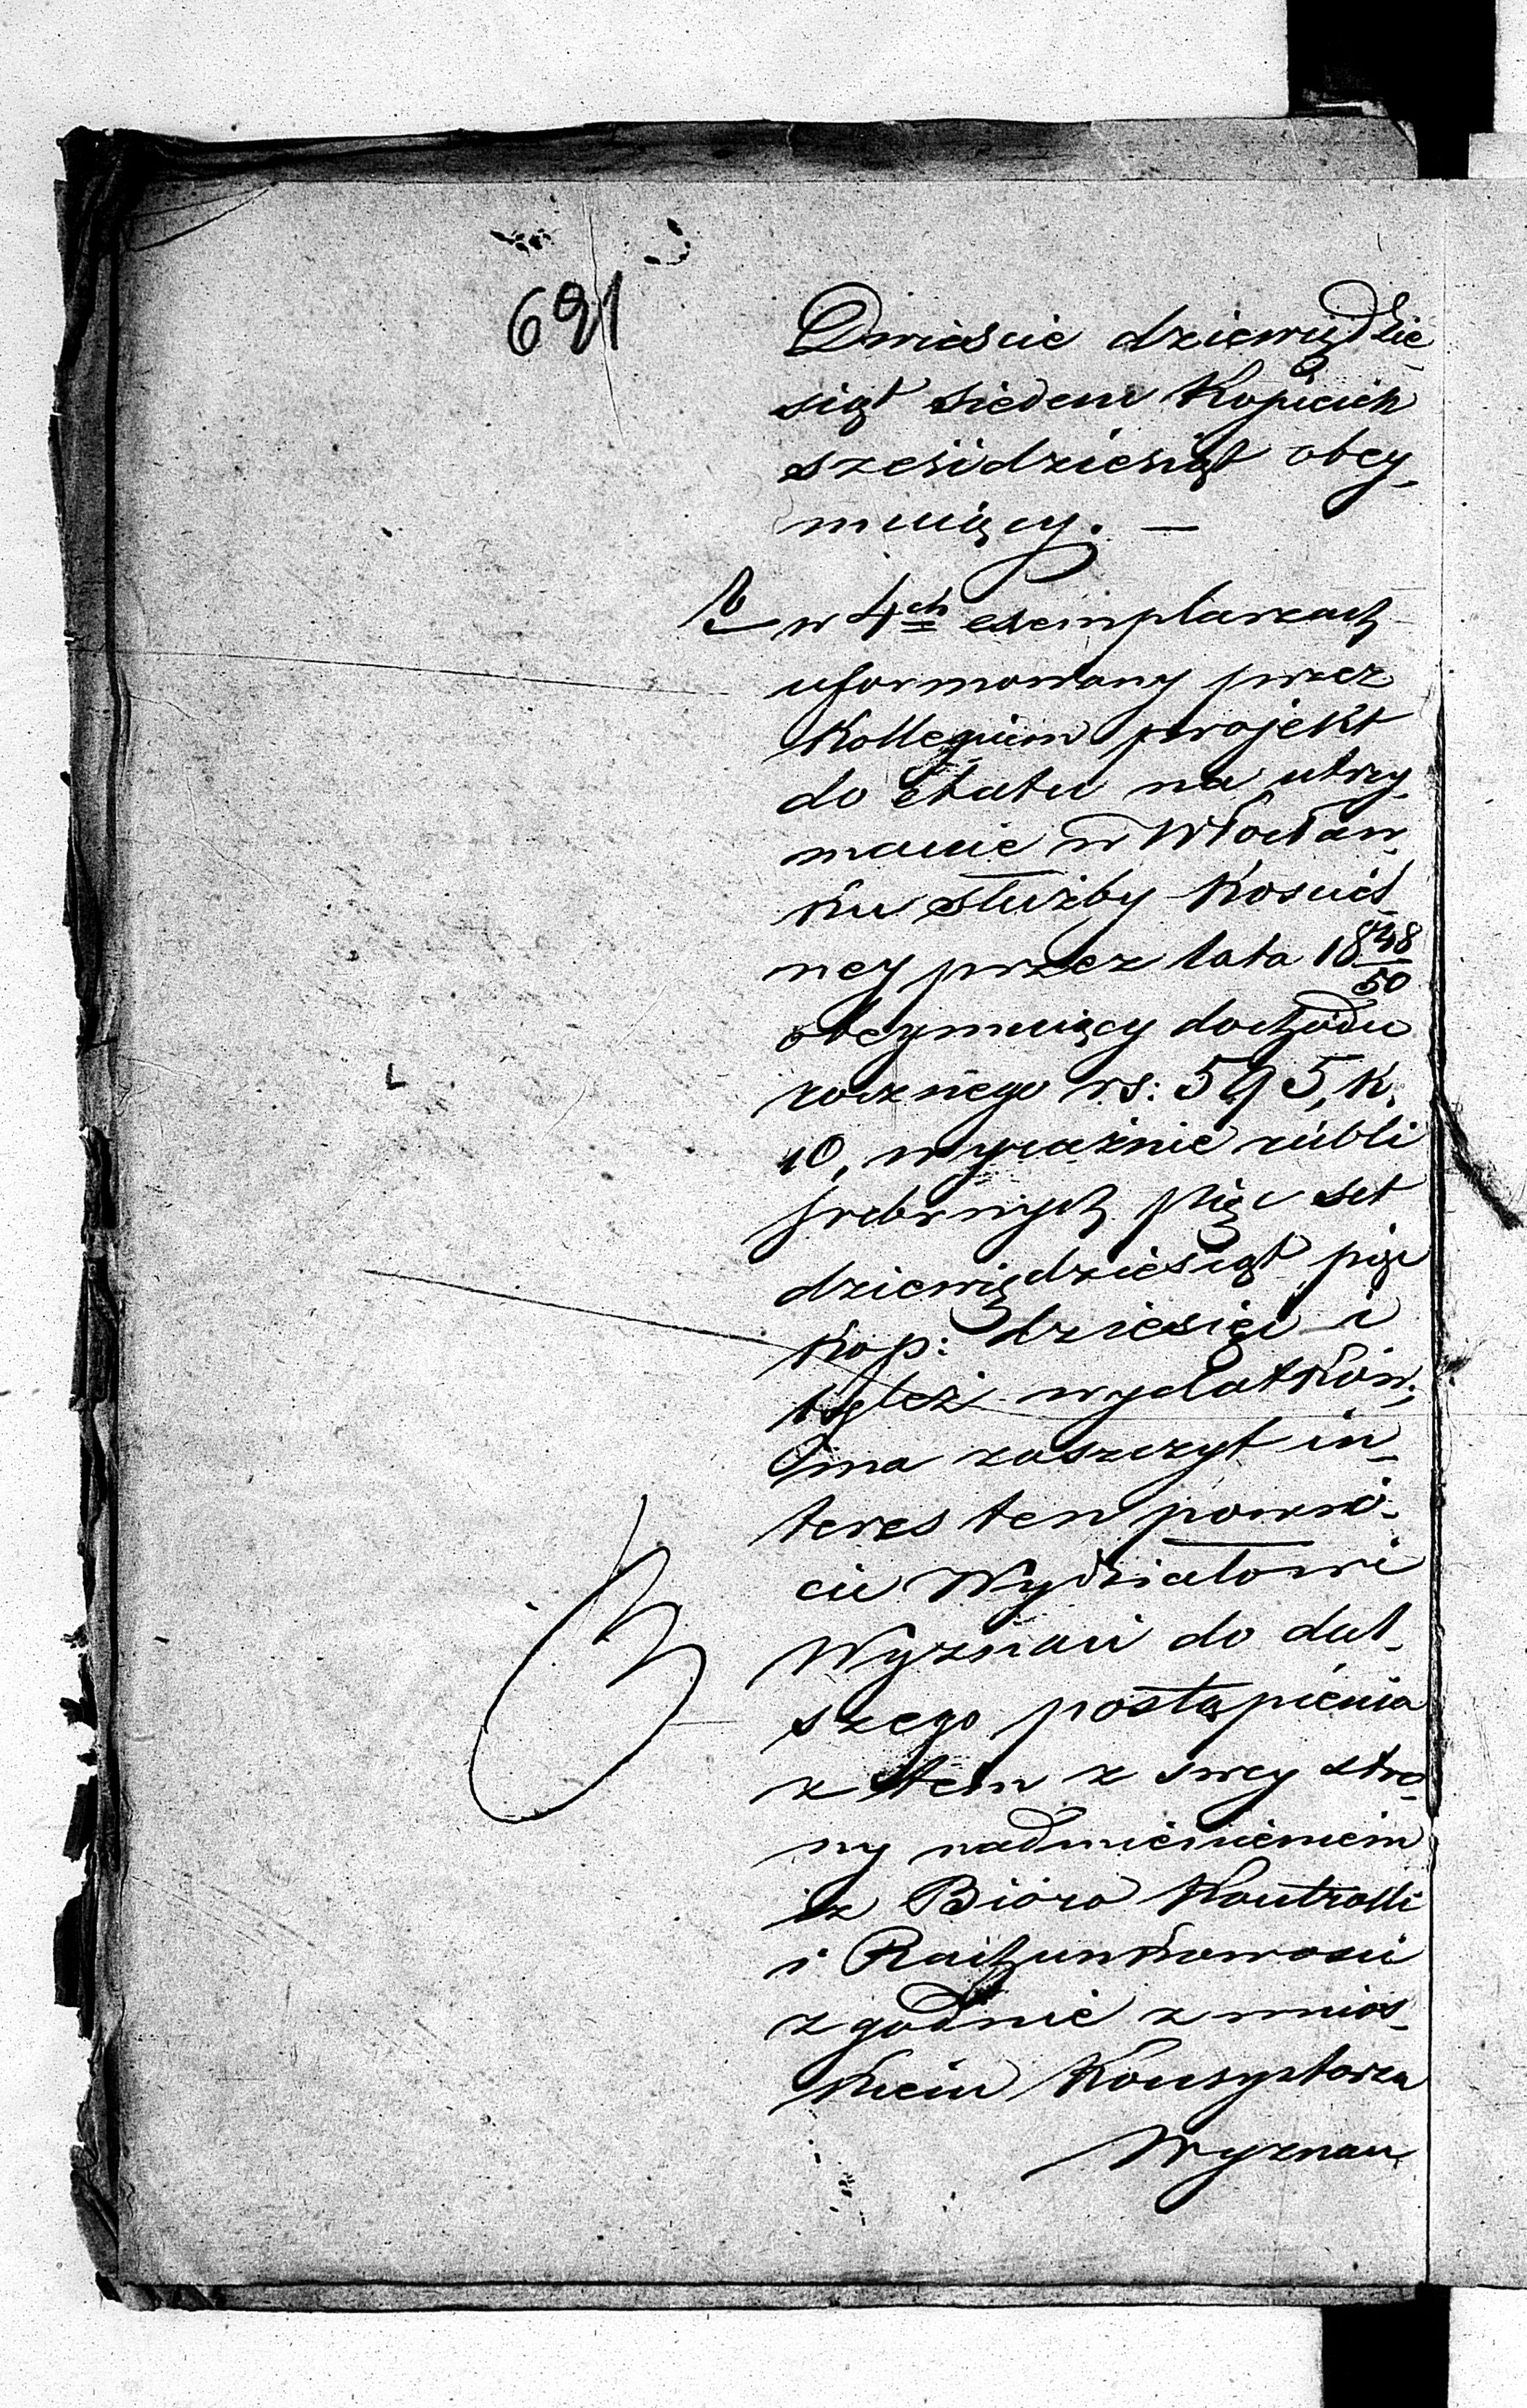 691
Dwieście dziewiędzie-
siąt siedem Kopieiek
sześidziesiąt obey-
muiący. —
b w 4ch exemplarzach
uformowany przez
Kollegium projekt
do etatu na utrzy-
manie w Włocław-
ku służby Kościel-
ney przez lata 1848/50
obeymuiący dochodu
rocznego rs: 595, k.
10, wyraźnie rubli
srebrnych pięc set
dziewiędziesiąt pięc
kop: dziesięc i
tyleż wydatków;
ma zaszczyt in-
teres ten powró-
cić Wydziałowi
Wyznań do dal-
szego postąpienia
z tem z swey stro-
ny nadmienieniem
iż Bióro Kontrolli
i Rachunkowości
zgodnie z wnios-
kiem Konsyptorza
Wyznań